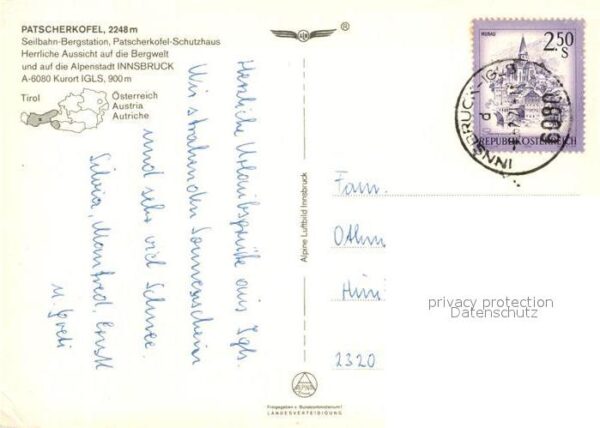 PATSCHERKOFEL, 2248 m
Seilbahn-Bergstation, Patscherkofel-Schutzhaus
Herrliche Aussicht auf die Bergwelt
und auf die Alpenstadt INNSBRUCK
A-6080 Kurort IGLS, 900 m
Tirol
Österreich
Austria
Autriche
®
Herzliche Urlaubsgrüße aus Igls.
Mit strahlendem Sonnenschein
und sehr viel Schnee.
Silvia, Manfred,
u. Greti
Alpine Luftbild Innsbruck
ALPINE
Freigegeben v. Bundesministerium f.
LANDESVERTEIDIGUNG
MURAU
2.50
S
REPUBLIK ÖSTERREICH
INNSBRUCK-IGLS
6080
d
Fam.
Othm
2320
privacy protection
Datenschutz